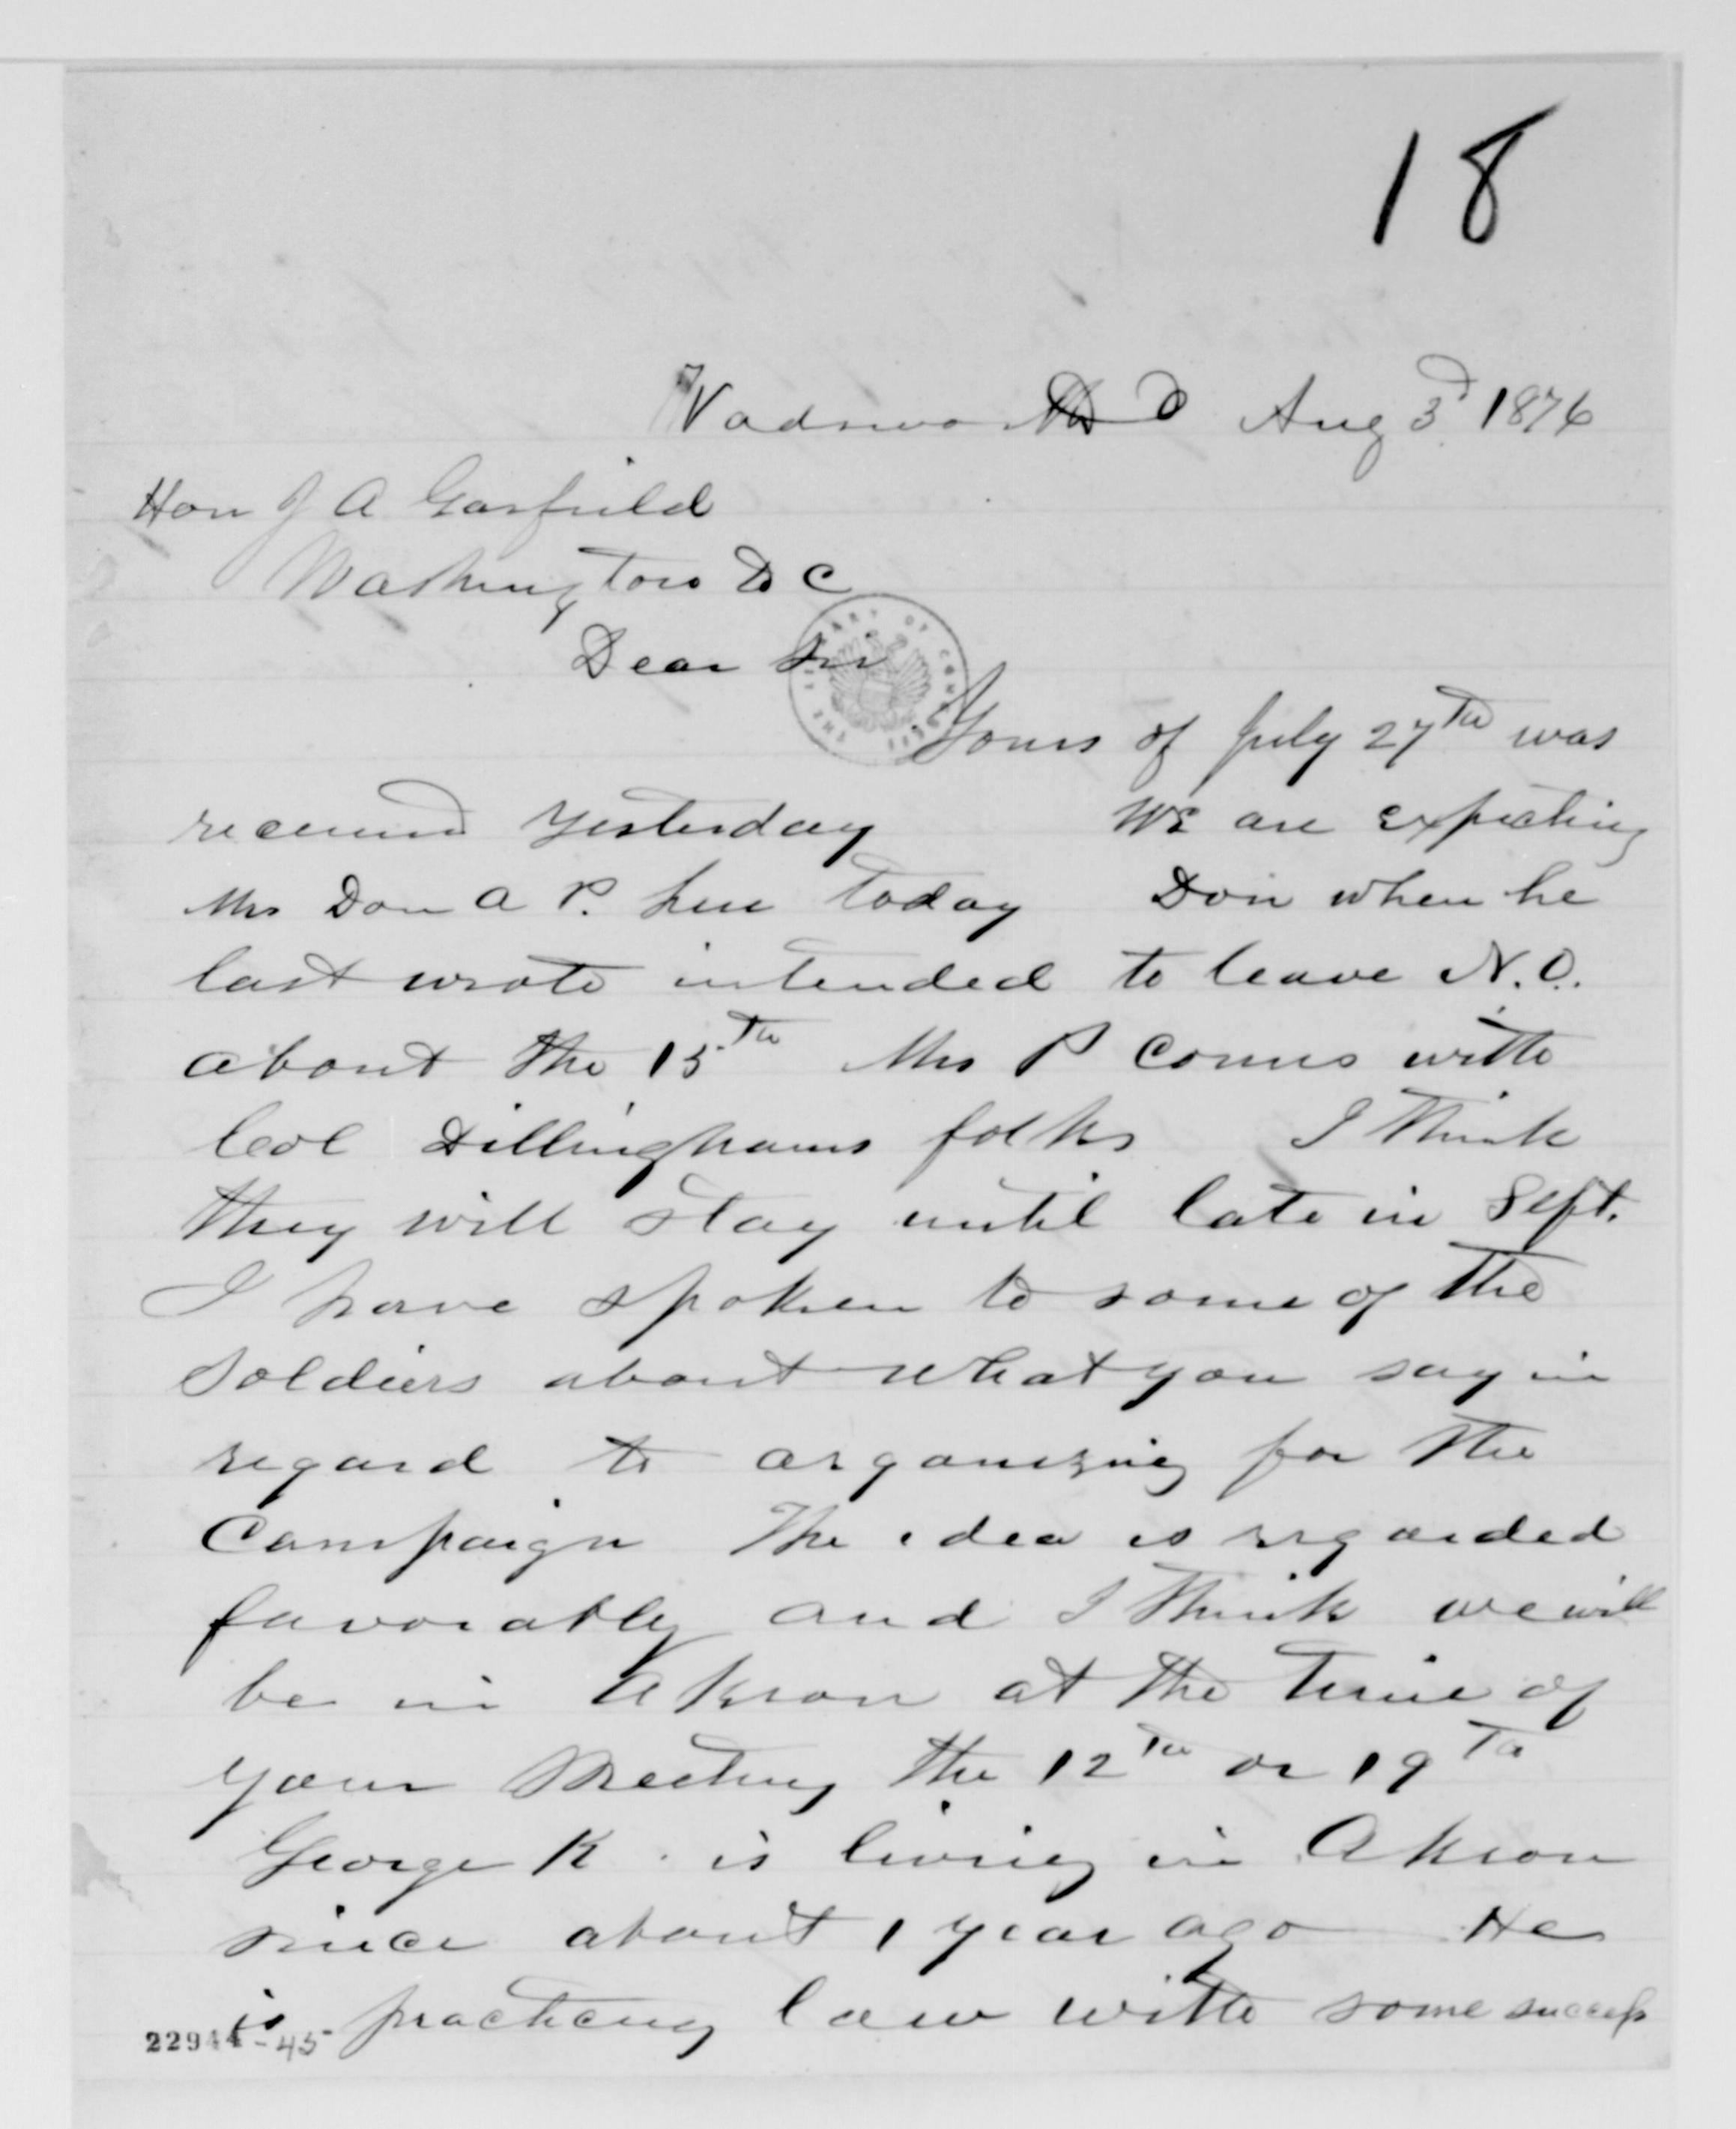 18
Wadsworth O Aug 3d 1876
Hon J A Garfield
Washington D C
Dear Sir
THE LIBRARY OF CONGRESS
Yours of July 27th was
received yesterday We are expecting
Mrs Don A P. here today Don when he
last wrote intended to leave N.O.
about the 15th Mrs P comes with
Col Dillinghams folks I think
they will stay until late in Sept.
I have spoken to some of the
soldiers about what you say in
regard to organizing for the
Campaign The idea is regarded
favorably and I think we will
be in Akron at the time of
your Meeting the 12th or 19th
George K. is living in Akron
since about 1 year ago He
is practicing law with some success
22944-45